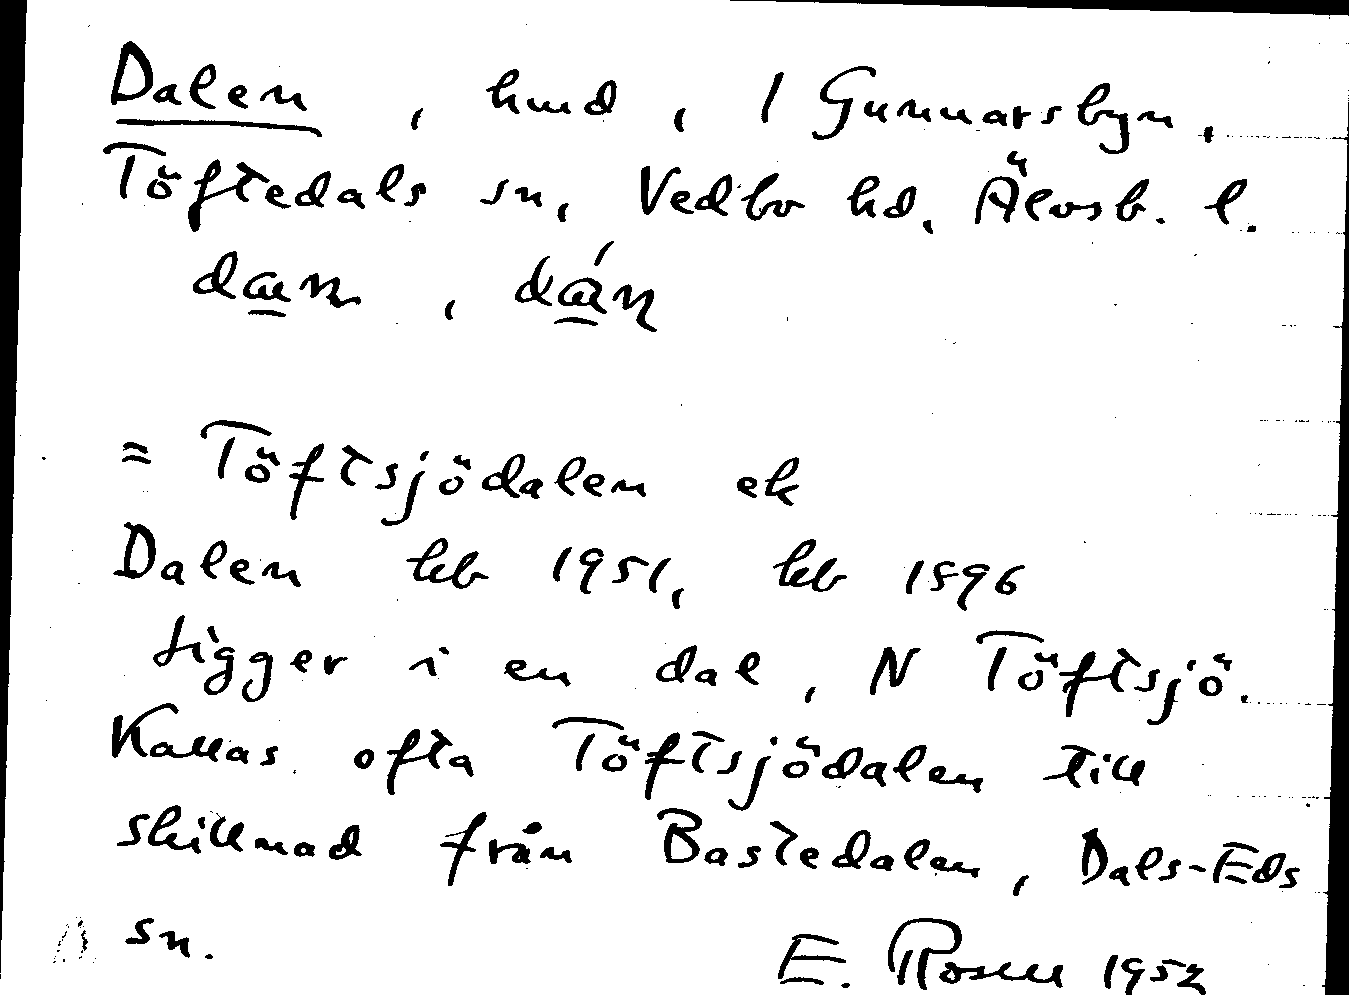 Dalen, hmd, 1 Gunnarsbyn,
Töftedals sn, Vedbo hd, Älvsb. l.
= Töftsjödalen ek
Dalen kb 1951, kb 1896
Ligger i en dal, N Töftsjö.
Kallas ofta Töftsjödalen till
skillnad från Bastedalen, Dals-Eds
sn.
E. Rosell 1952